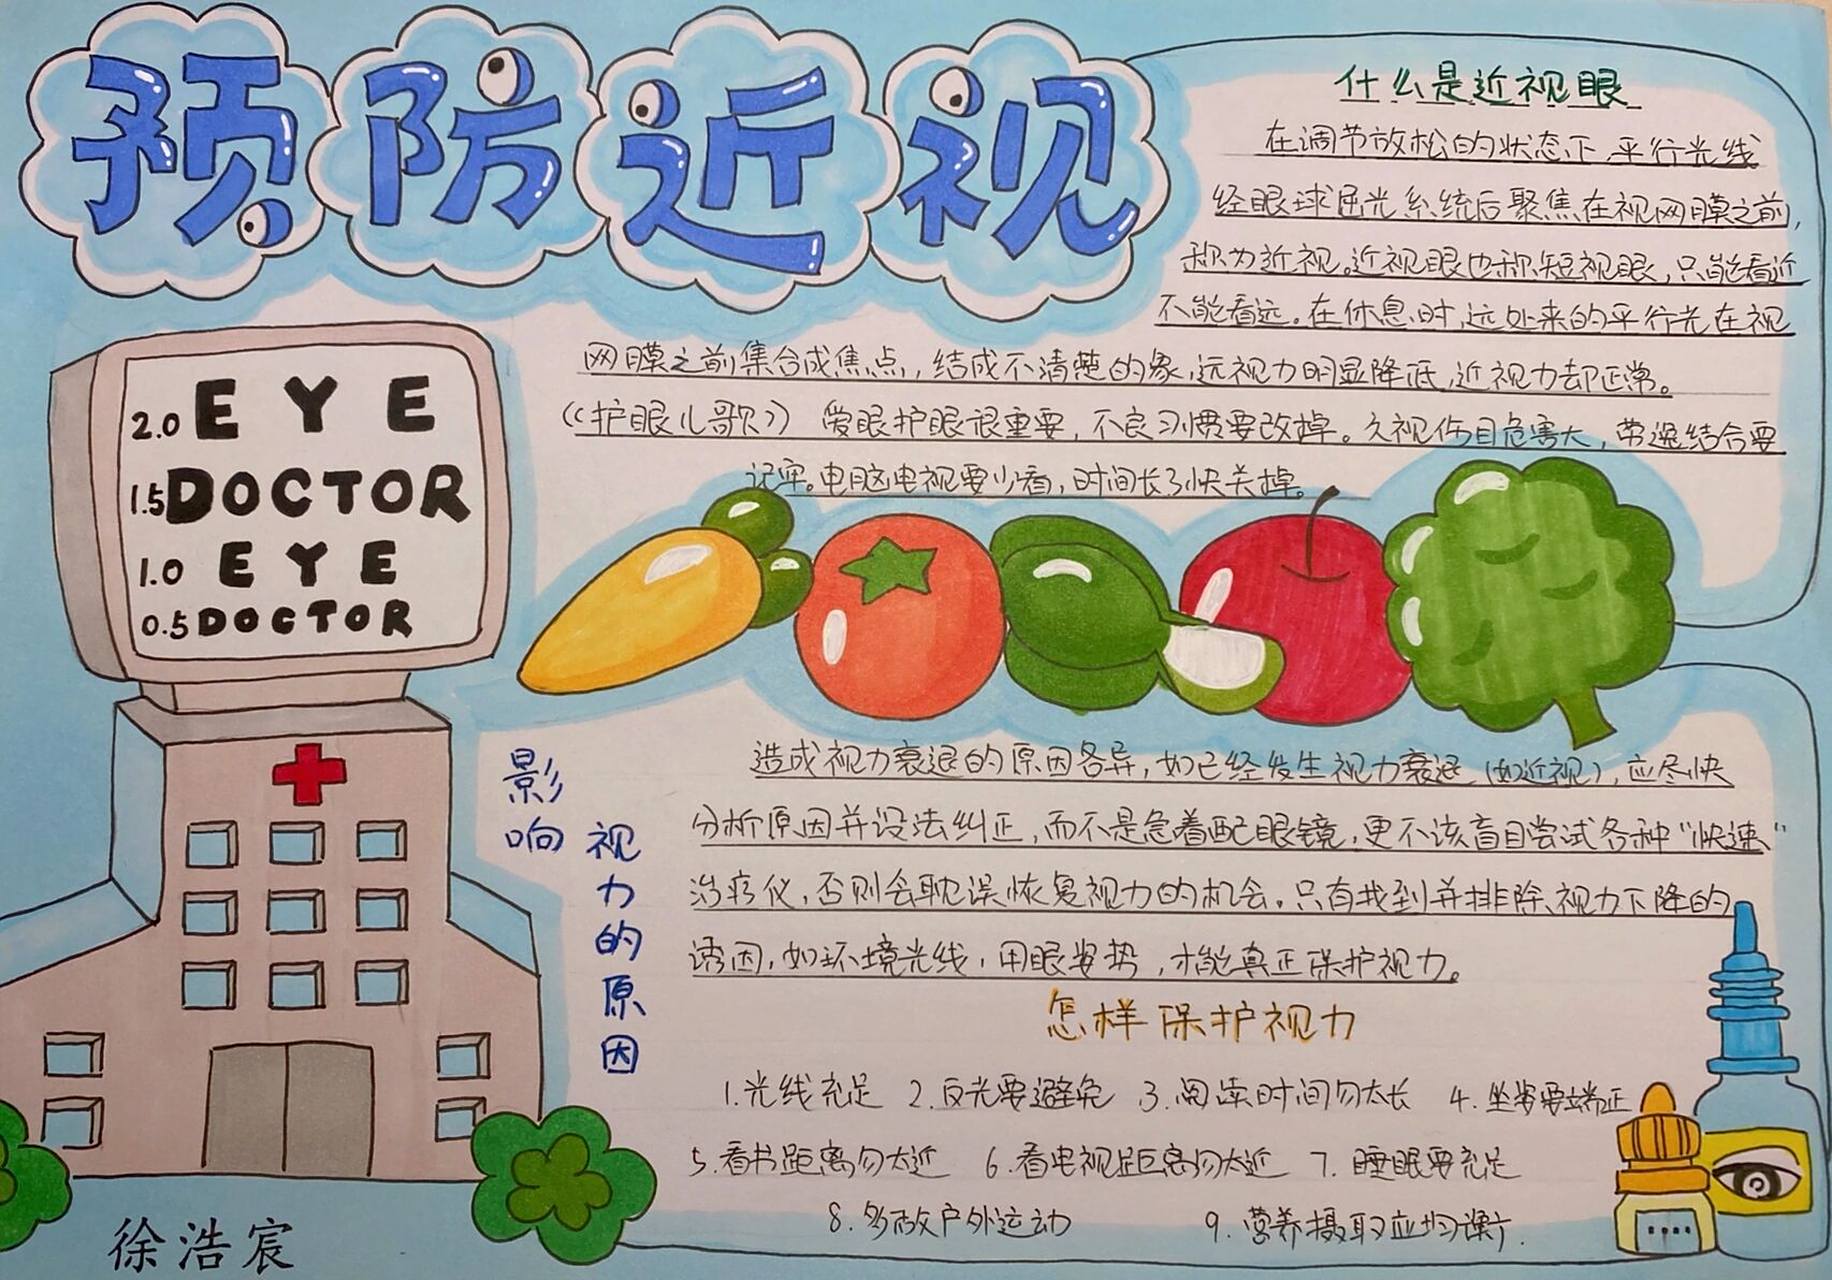 预防近视
什么是近视眼
在调节放松的状态下,平行光线
经眼球屈光系统后聚焦在视网膜之前,
称为近视。近视眼也称短视眼,只能看近
不能看远。在休息时,远处来的平行光在视
网膜之前集合成焦点,结成不清楚的象,远视力明显降低,近视力却正常。
《护眼儿歌》 爱眼护眼很重要,不良习惯要改掉。久视伤目危害大,劳逸结合要
记牢。电脑电视要少看,时间长了快关掉。
2.0 E Y E
1.5 DOCTOR
1.0 E Y E
0.5 DOCTOR
影响
视力的原因
造成视力衰退的原因各异,如已经发生视力衰退(如近视),应尽快
分析原因并设法纠正,而不是急着配眼镜,更不该盲目尝试各种“快速”
治疗仪,否则会耽误恢复视力的机会。只有找到并排除视力下降的
诱因,如环境光线,用眼姿势,才能真正保护视力。
怎样保护视力
1.光线充足 2.反光要避免 3.阅读时间勿太长 4.坐姿要端正
5.看书距离勿太近 6.看电视距离勿太近 7.睡眠要充足
8.多做户外运动 9.营养摄取应均衡.
徐浩宸